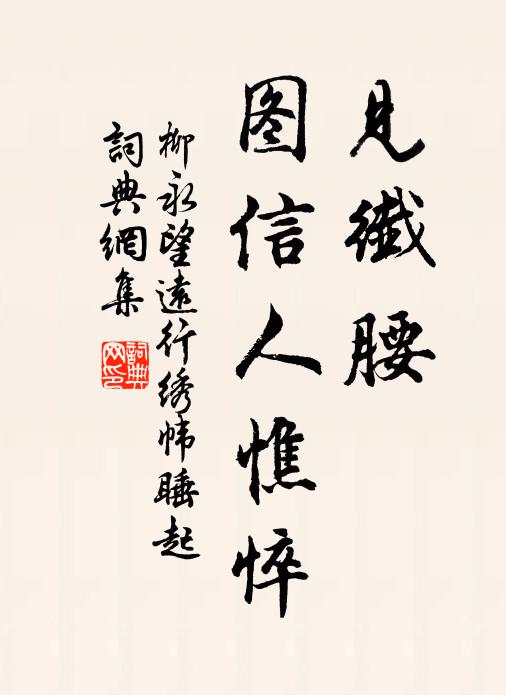 見纖腰
图信人憔悴
柳永望遠行绣帏睡起
詞典網集
詞典网印